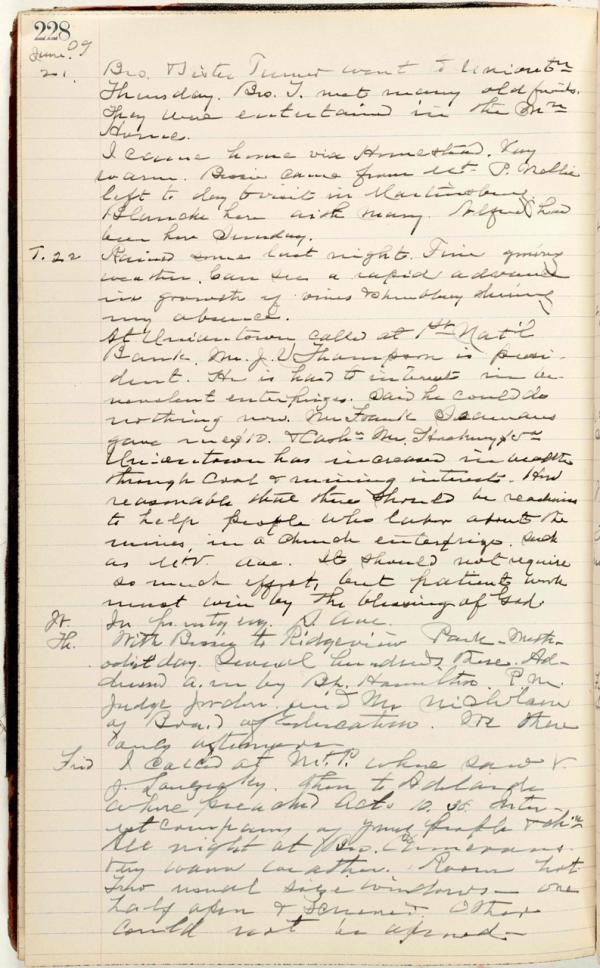 228
June. 09
21. Bro. & Sister Turner went to Uniont'n
Thursday. Bro. T. met many old friends.
They were entertained in the
Home.
I came home via Homestead. Very
warm. Bessie came from Mt. P. Nellie
left to day to visit in Martinsburg.
Blanche here with Mary. Alfred had
been here Sunday.
T. 22 Rained some last night. Fine growing
weather. Can see a rapid advance
in growth of vines & shrubbery during
my absence.
At Uniontown called at 1st Nat'l
Bank. Mr. J. V. Thompson is presi-
dent. He is hard to interest in be-
nevolent enterprizes. Said he could do
nothing now. Mr Frank Seamans
gave me $10. & Cash'r Mr.
Uniontown has increased in wealth
through Coal & mining interests. How
reasonable that there should be readiness
to help people who labor about the
mines, in a church enterprize, such
as Mt V. Ave. It should not require
so much effort, but patient work
must win by the blessing of God.
W. In pr. mtg. Ave.
Th. With Bessie to Ridgeview Park - Meth-
odist day. Several hundreds there. Ad-
dressed a.m by Bp. Hamilton. P.M.
Judge Jordon and Mr Nicholson
of Board of Education. We there
only afternoon
Frid I called at Mt. P. where saw
J. then to Adelaide
where preached Acts 10. Inter-
est company of young people &
All night at Bro. Camerons.
Very warm weather. Room hot
Two usual size windows - one
half open & screened. Other
could not be opened -